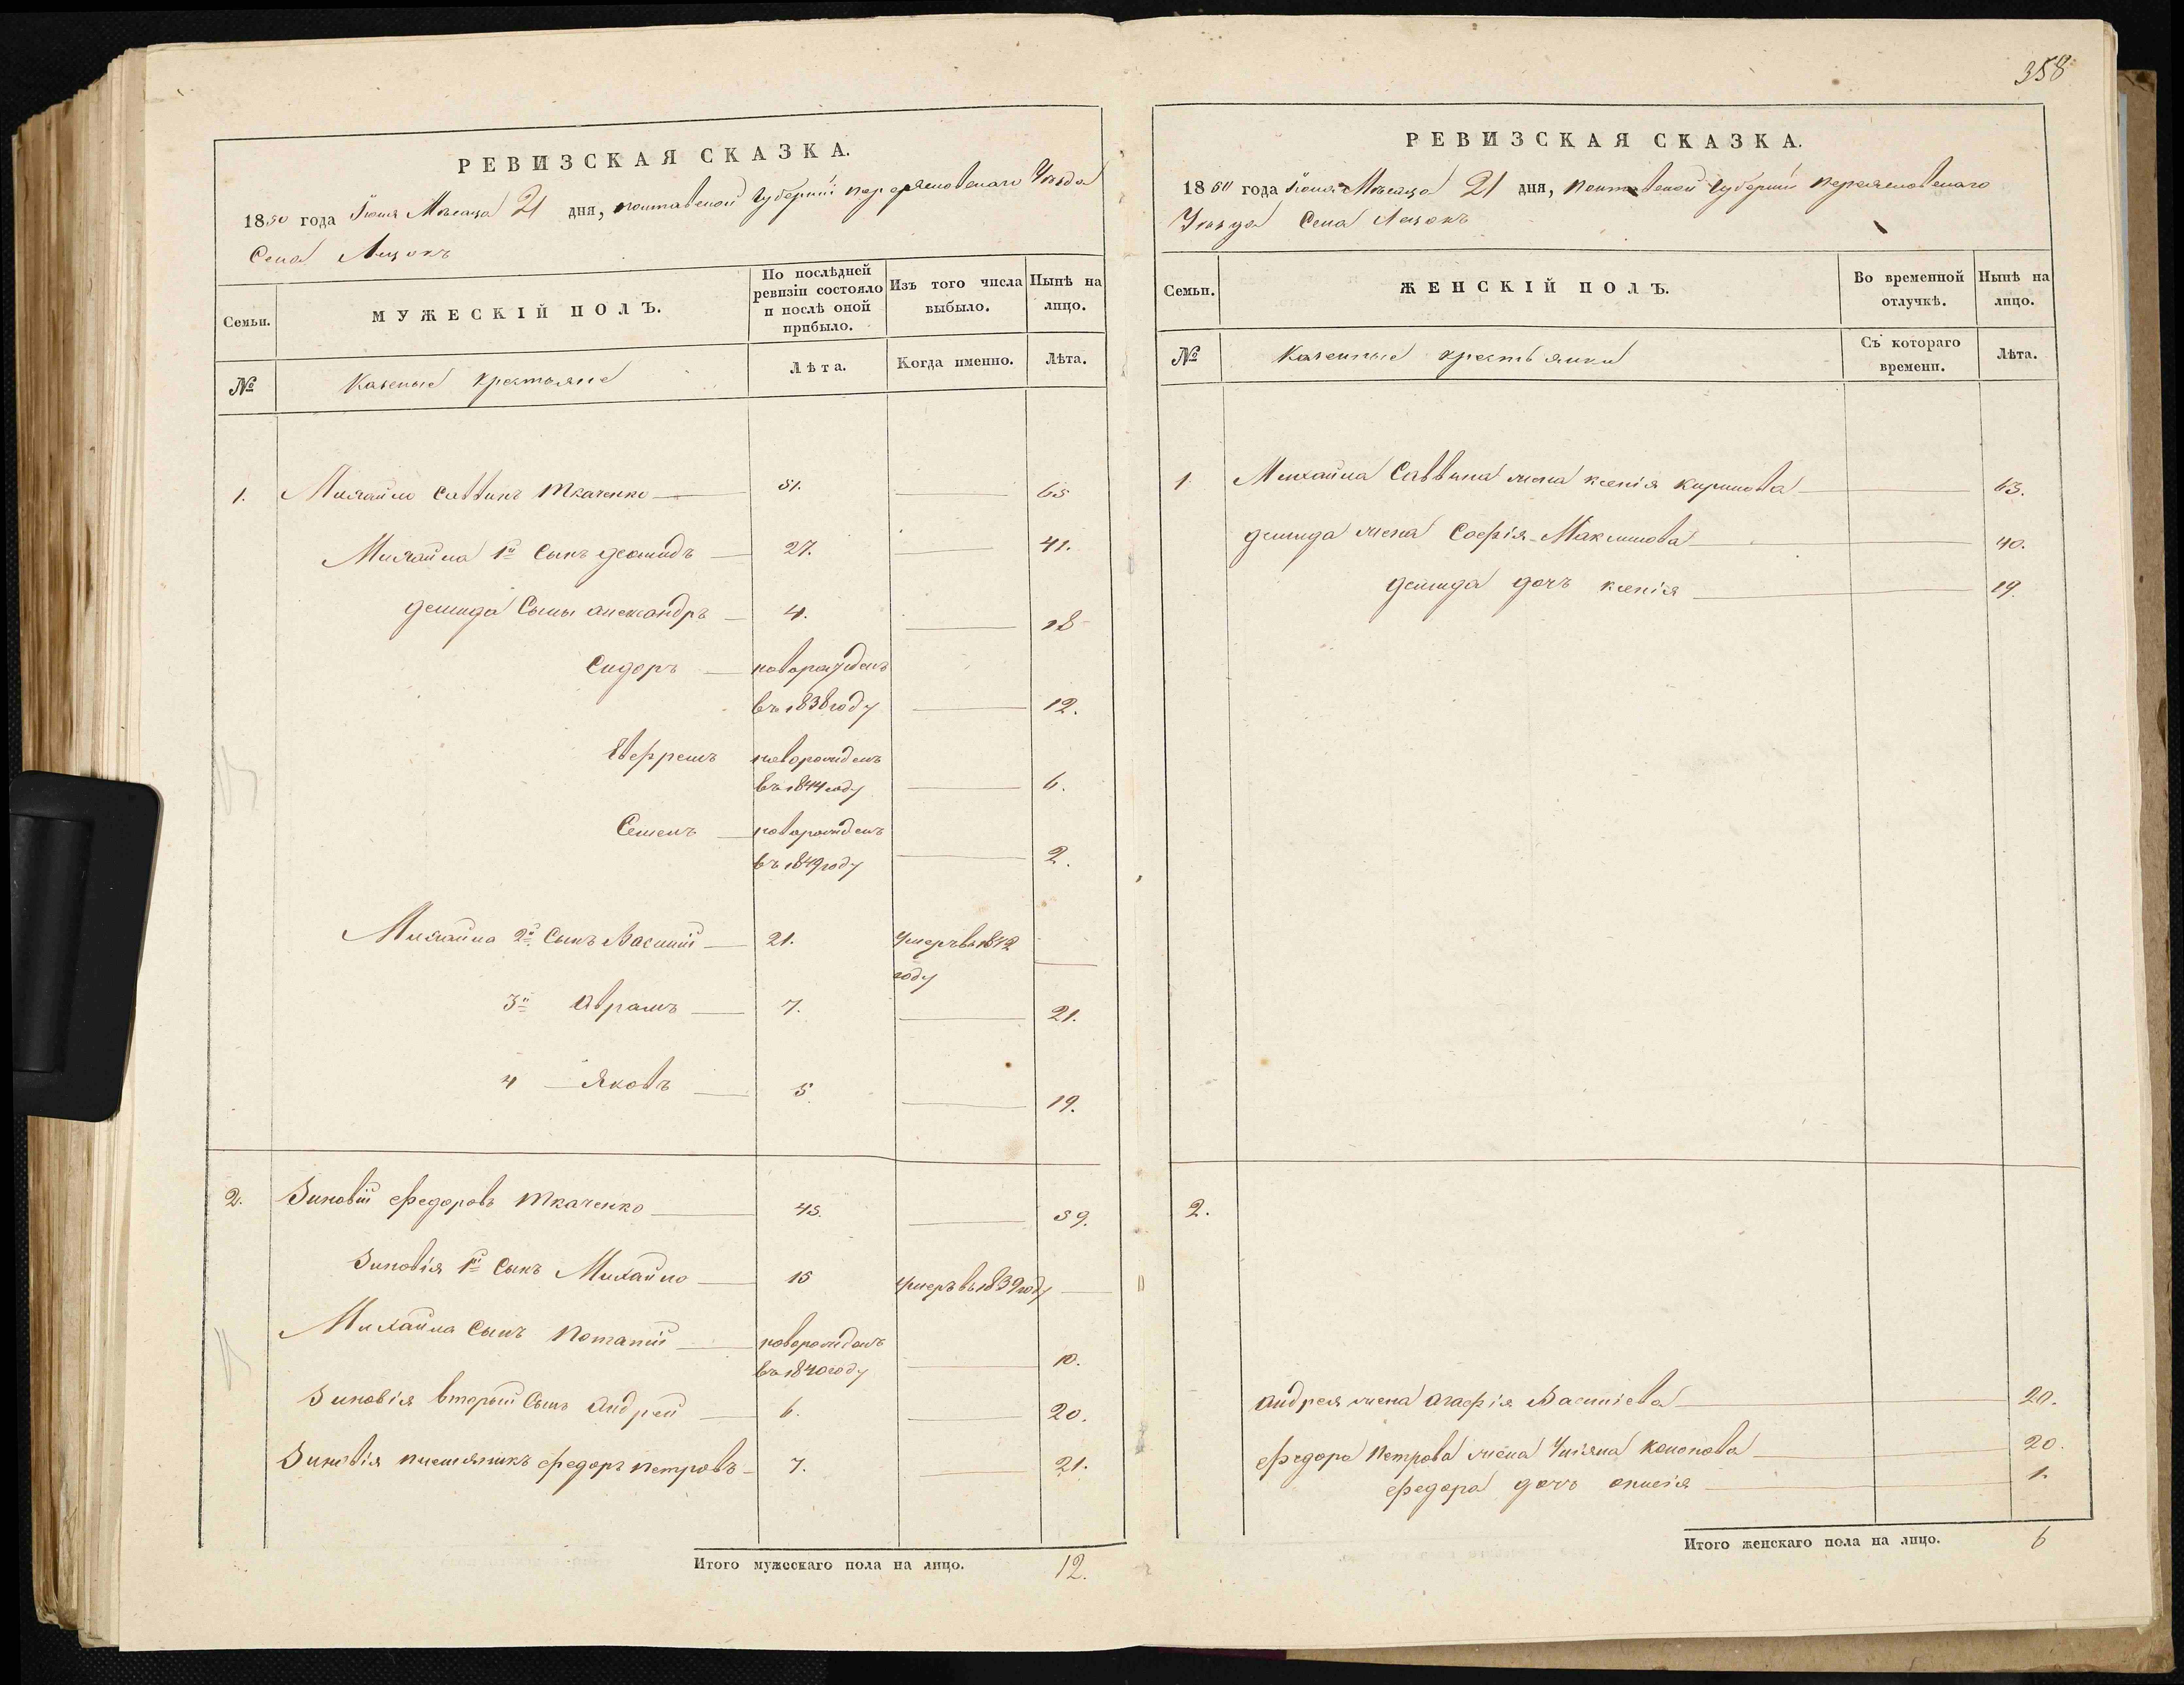 358
РЕВИЗСКАЯ СКАЗКА.
1850 года Июня Месяца 21 дня, полтавской губернии переяславского Уезда
Села Лецокъ
Семьи.
МУЖЕСКІЙ ПОЛЪ.
По послѣдней ревизіи состояло и послѣ оной прибыло.
Изъ того числа выбыло.
Нынѣ на лицо.
№
Казеные крестьяне
Лѣта.
Когда именно.
Лѣта.
1. Михайло Саввинъ Ткаченко 51. 65
Михайла 1й Сынъ демидъ 27. 41.
демида Сыны александръ 4. 18
Сидоръ новорожденъ
въ 1838 году 12.
Евфремъ новорожденъ
въ 1844 году 6.
Семенъ новорожденъ
въ 1849 году 2.
Михайла 2й Сынъ Василий 21. умеръ въ 1842
году
3й Аврамъ 7. 21.
4 Яковъ 5. 19.
2. Зиновій Федоровъ Ткаченко 45. 59.
Зиновія 1й Сынъ Михайло 15 умеръ въ 1839 году
Михайла Сынъ Потапій новорожденъ
въ 1840 году 10.
Зиновія вторый Сынъ Андрей 6. 20.
Зиновія племяникъ Федоръ Петровъ 7. 21.
Итого мужескаго пола на лицо. 12.
РЕВИЗСКАЯ СКАЗКА.
1850 года Июня Месяца 21 дня, полтавской губернии переяславского
Уезда Села Лецокъ
Семьи.
ЖЕНСКІЙ ПОЛЪ.
Во временной отлучкѣ.
Нынѣ на лицо.
№
Казенные крестьянки
Съ котораго времени.
Лѣта.
1. Михайла Саввина жена ксенія кирилова 63.
демида жена Софія Максимова 40.
демида дочь ксенія 19.
2.
Андрея жена агафія Василіева 20.
Федора Петрова жена Уліяна кононова 20.
Федора дочь 1.
Итого женскаго пола на лицо. 6